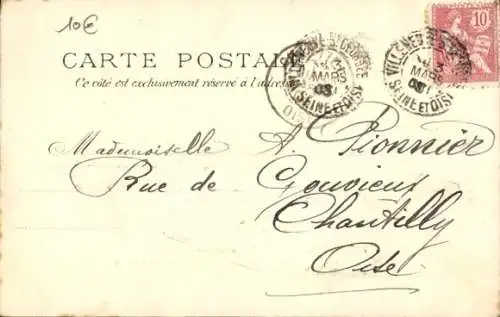 10€
10
CARTE POSTALE
Ce côté est exclusivement réservé à l'adresse
VILLENEUVE ST GEORGES
MARS
03
SEINE ET OISE
MARS
SEINE ET OISE
Mademoiselle A. Pionnier
Rue de Gouvieux
Chantilly
Oise